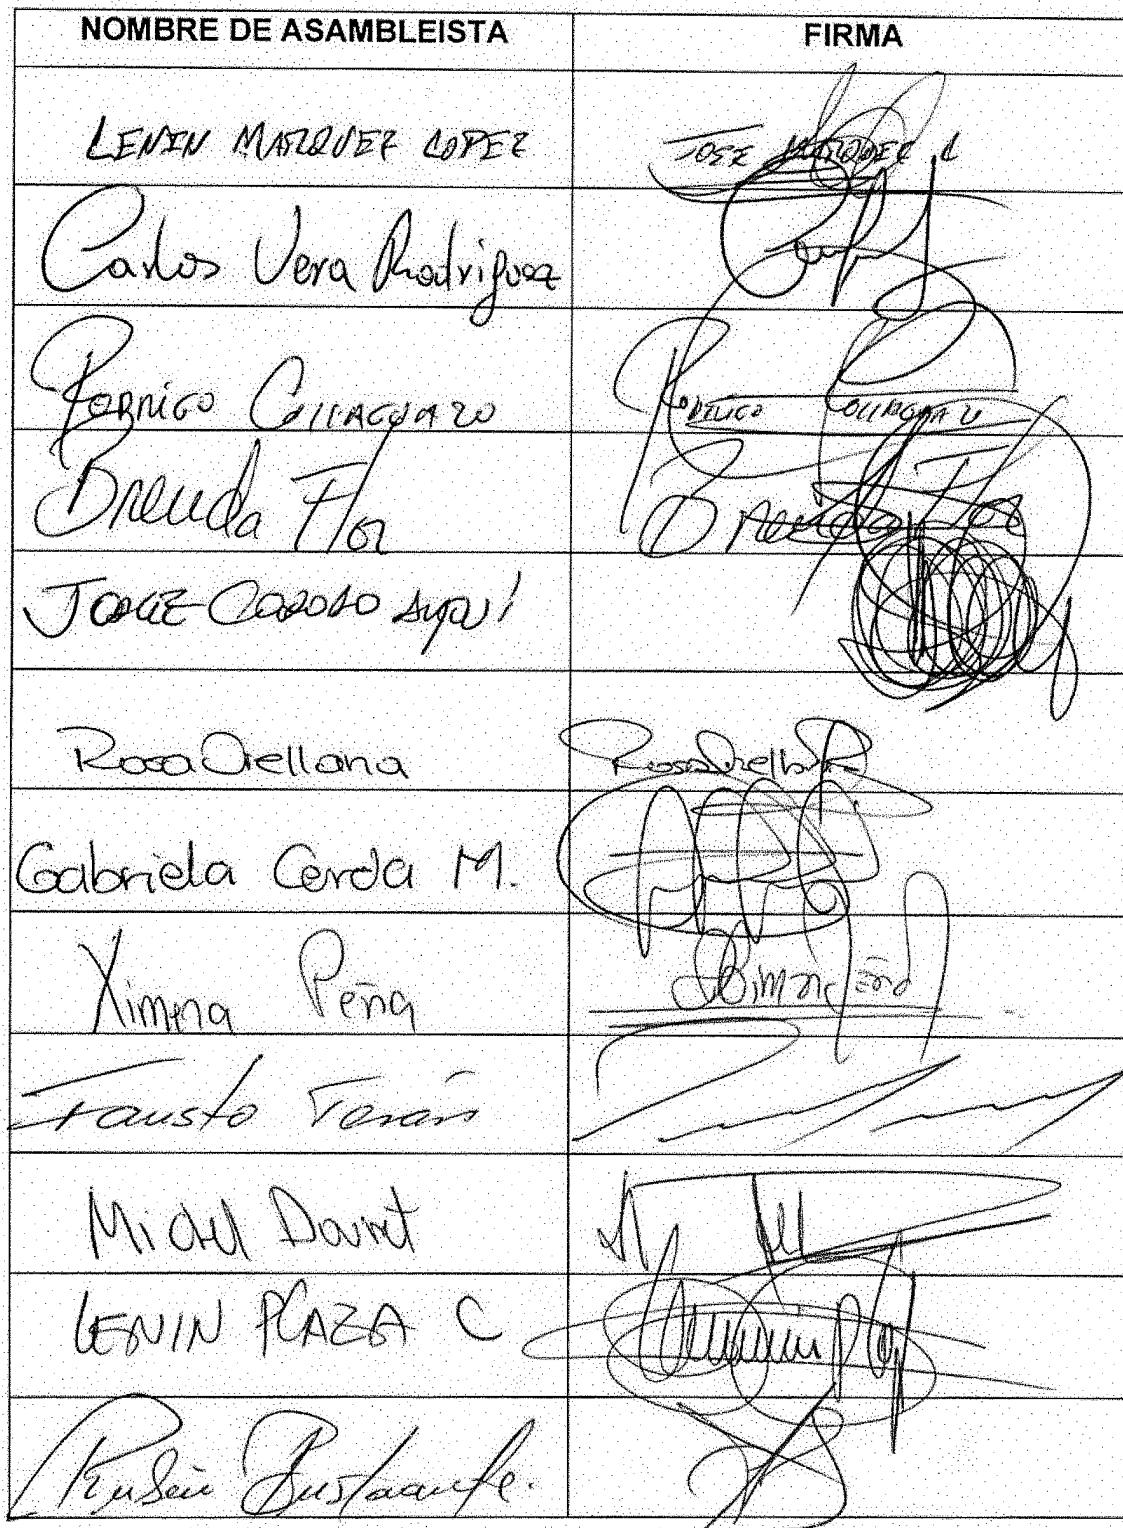 NOMBRE DE ASAMBLEISTA FIRMA
LENIN MARQUEZ LOPEZ JOSE MARQUEZ L
Carlos Vera Rodriguez
RODRIGO COLLAGUAZO RODRIGO COLLAGUAZO
Brenda Flor Brenda Flor
JORGE COROZO AYOVI
Rosa Orellana Rosa Orellana
Gabriela Cerda M.
Ximena Peña Ximena Peña
Fausto Terán
Michel Doumet
LENIN PLAZA C
Rubén Bustamante.